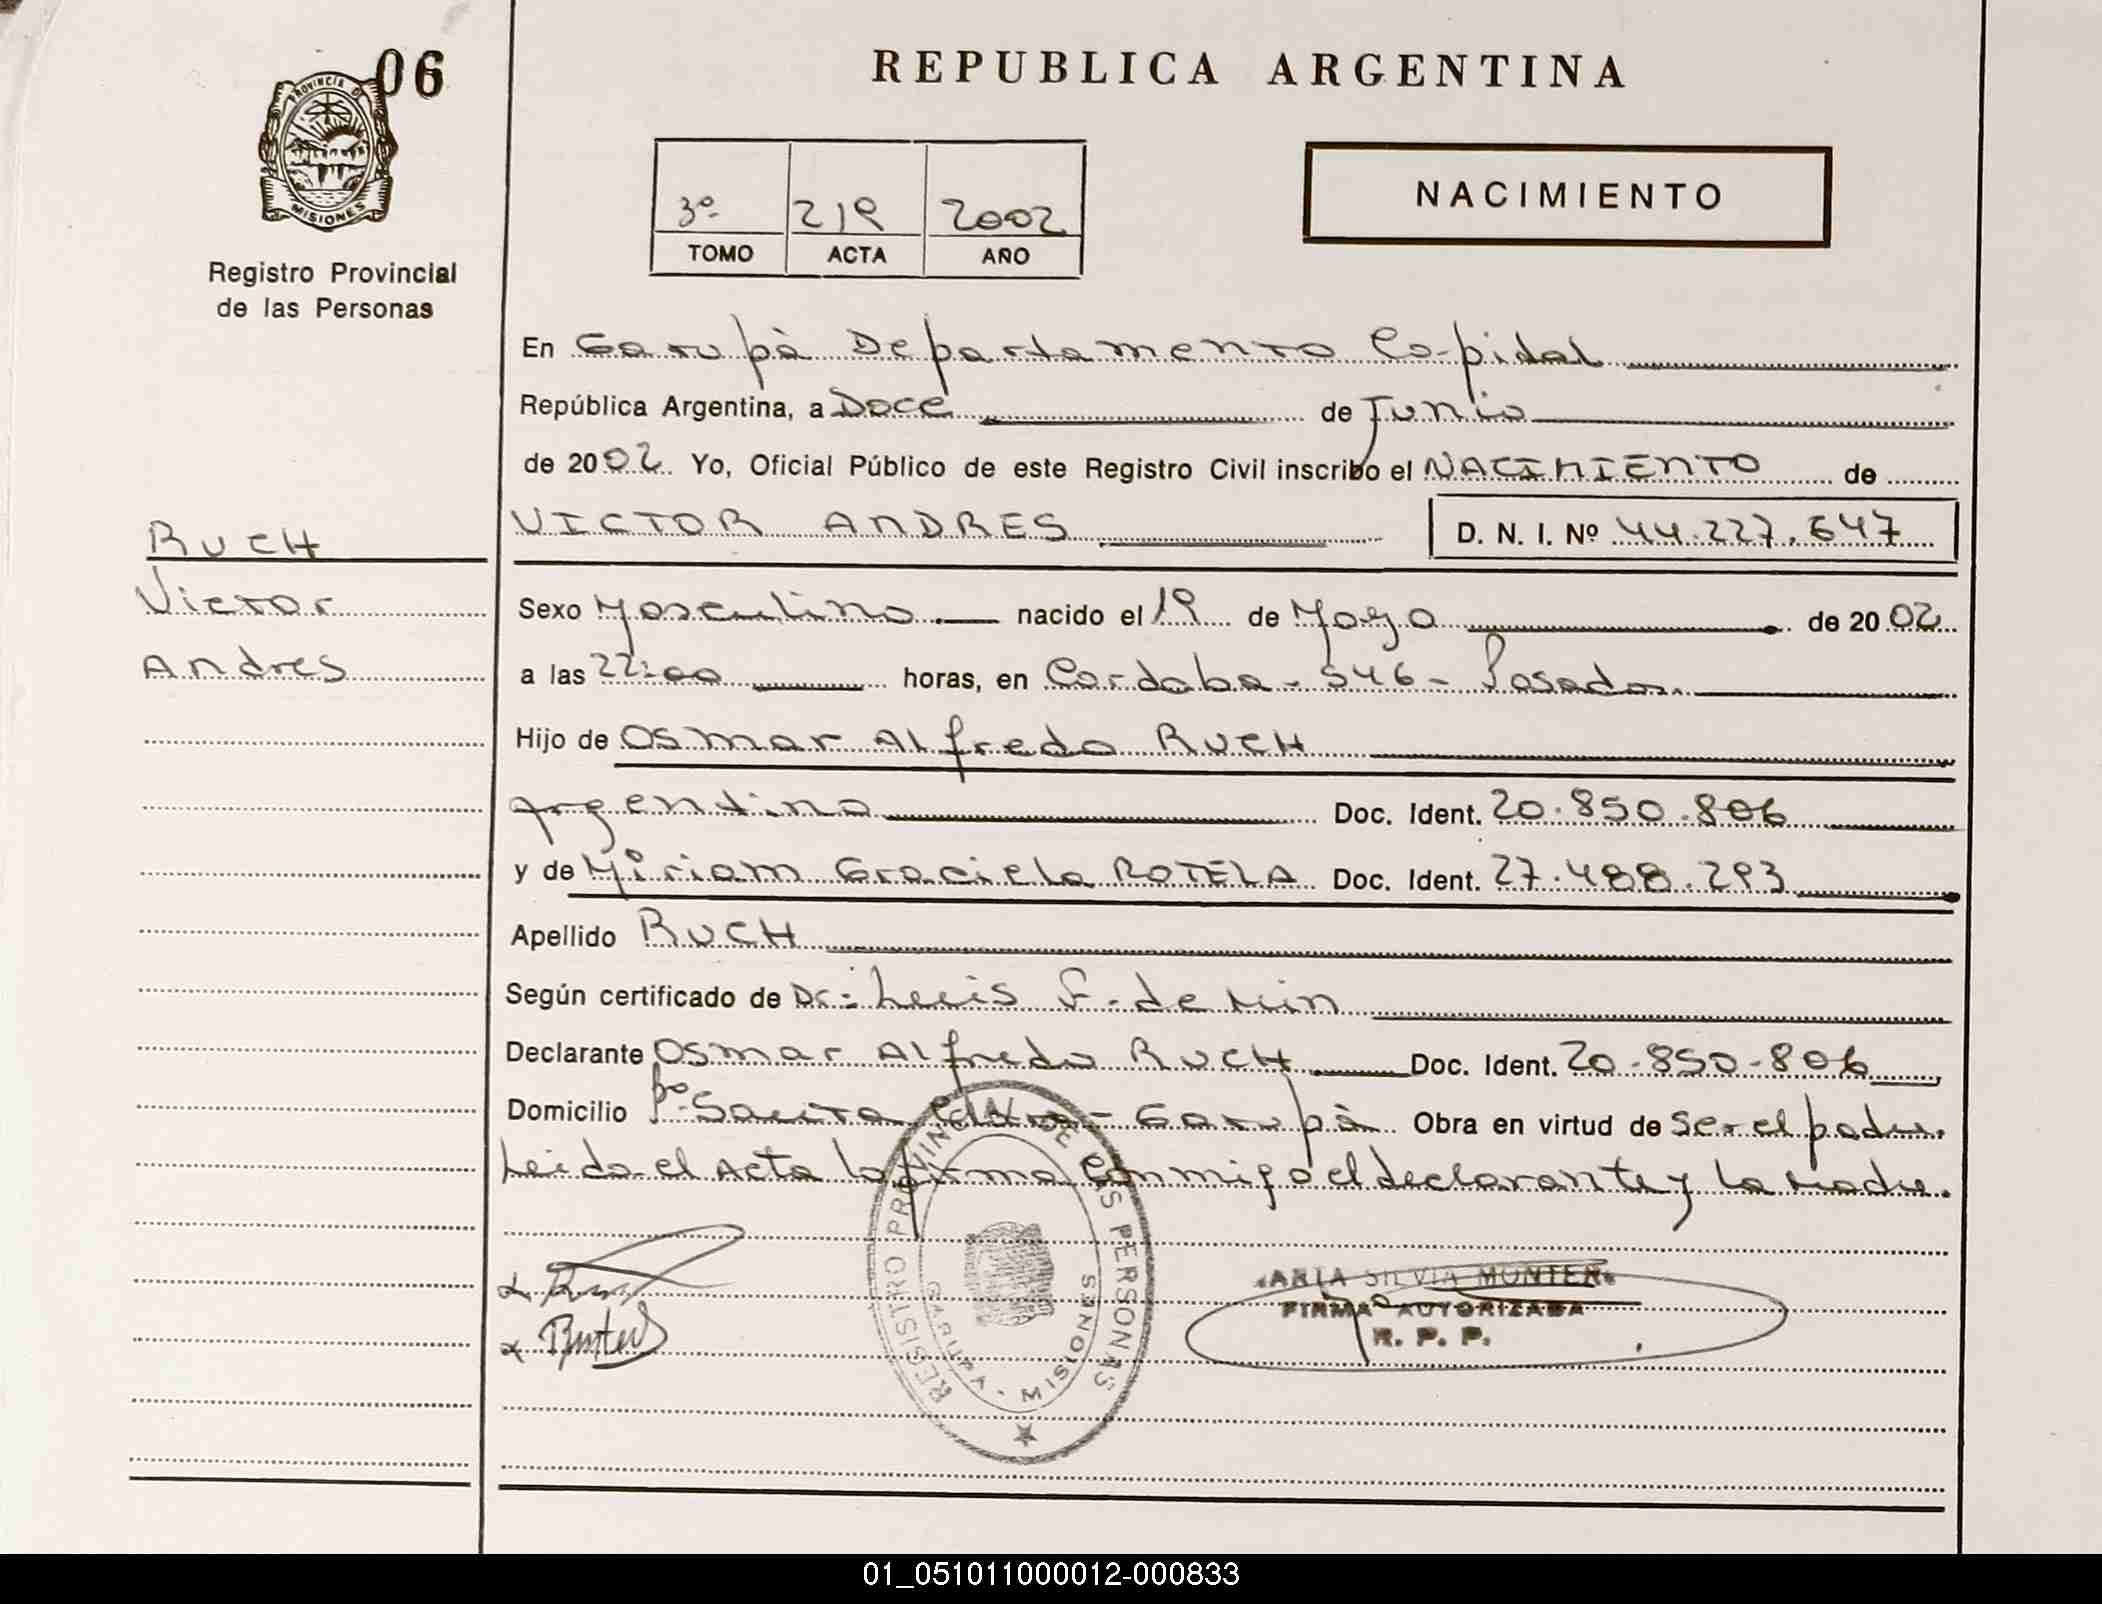 06
PROVINCIA D
MISIONES
Registro Provincial
de las Personas
REPUBLICA ARGENTINA
3º 219 2002
TOMO ACTA AÑO
NACIMIENTO
En Garupà Departamento Capital
República Argentina, a Doce de Junio
de 2002 Yo, Oficial Público de este Registro Civil inscribo el NACIMIENTO de
VICTOR ANDRES D. N. I. Nº 44.227.647
RUCH
Victor
Andres
Sexo Masculino nacido el 19 de Mayo de 2002
a las 22:00 horas, en Cordoba - 546 - Posadas
Hijo de Osmar Alfredo RUCH
Argentino Doc. Ident. 20.850.806
y de Miriam Graciela ROTELA Doc. Ident. 27.488.293
Apellido RUCH
Según certificado de Dr: Luis F. de
Declarante Osmar Alfredo RUCH Doc. Ident. 20-850-806
Domicilio Bº Santa Clara - Garupà Obra en virtud de Ser el padre.
Leida el Acta la firma conmigo el declarante y la Madre.
REGISTRO PROVINCIAL DE LAS PERSONAS
GARUPA - MISIONES
ARIA SILVIA MONTER
FIRMA AUTORIZADA
R. P. P.
01_051011000012-000833